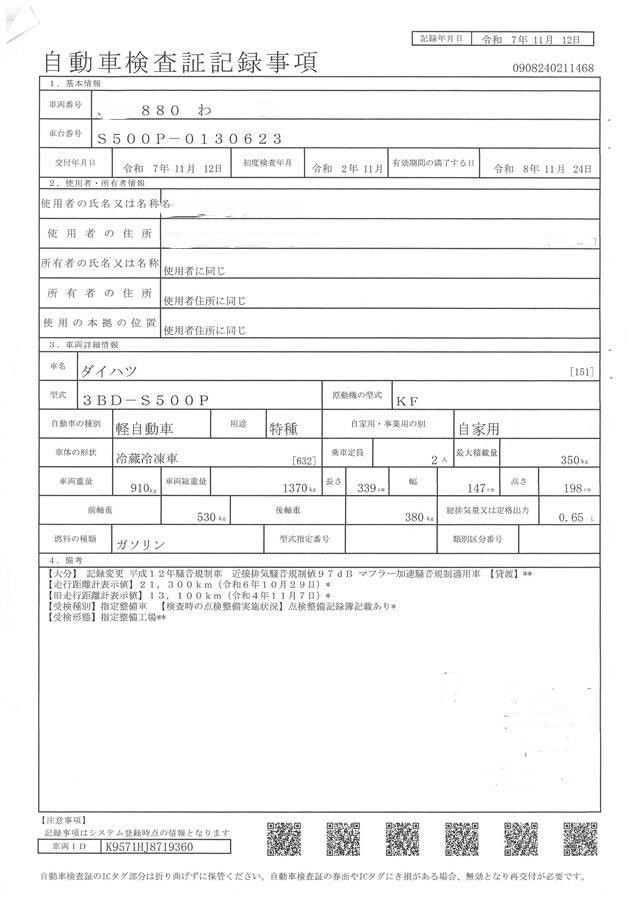 記録年月日 令和 7年 11月 12日
自動車検査証記録事項
0908240211468
1．基本情報
車両番号 880 わ
車台番号 S500P－0130623
交付年月日 令和 7年 11月 12日 初度検査年月 令和 2年 11月 有効期間の満了する日 令和 8年 11月 24日
2．使用者・所有者情報
使用者の氏名又は名称
使用者の住所
所有者の氏名又は名称 使用者に同じ
所有者の住所 使用者住所に同じ
使用の本拠の位置 使用者住所に同じ
3．車両詳細情報
車名 ダイハツ [151]
型式 3BD－S500P 原動機の型式 KF
自動車の種別 軽自動車 用途 特種 自家用・事業用の別 自家用
車体の形状 冷蔵冷凍車 [632] 乗車定員 2人 最大積載量 350kg
車両重量 910kg 車両総重量 1370kg 長さ 339cm 幅 147cm 高さ 198cm
前軸重 530kg 後軸重 380kg 総排気量又は定格出力 0.65 L
燃料の種類 ガソリン 型式指定番号 類別区分番号
4．備考
【大分】 記録変更 平成12年騒音規制車 近接排気騒音規制値97dB マフラー加速騒音規制適用車 【貸渡】**
【走行距離計表示値】21，300km（令和6年10月29日）*
【旧走行距離計表示値】13，100km（令和4年11月7日）*
【受検種別】指定整備車 【検査時の点検整備実施状況】点検整備記録簿記載あり*
【受検形態】指定整備工場**
【注意事項】
記録事項はシステム登録時点の情報となります
車両ID K9571HJ8719360
自動車検査証のICタグ部分は折り曲げずに保管ください。自動車検査証の券面やICタグにき損がある場合、無効となり再交付が必要です。